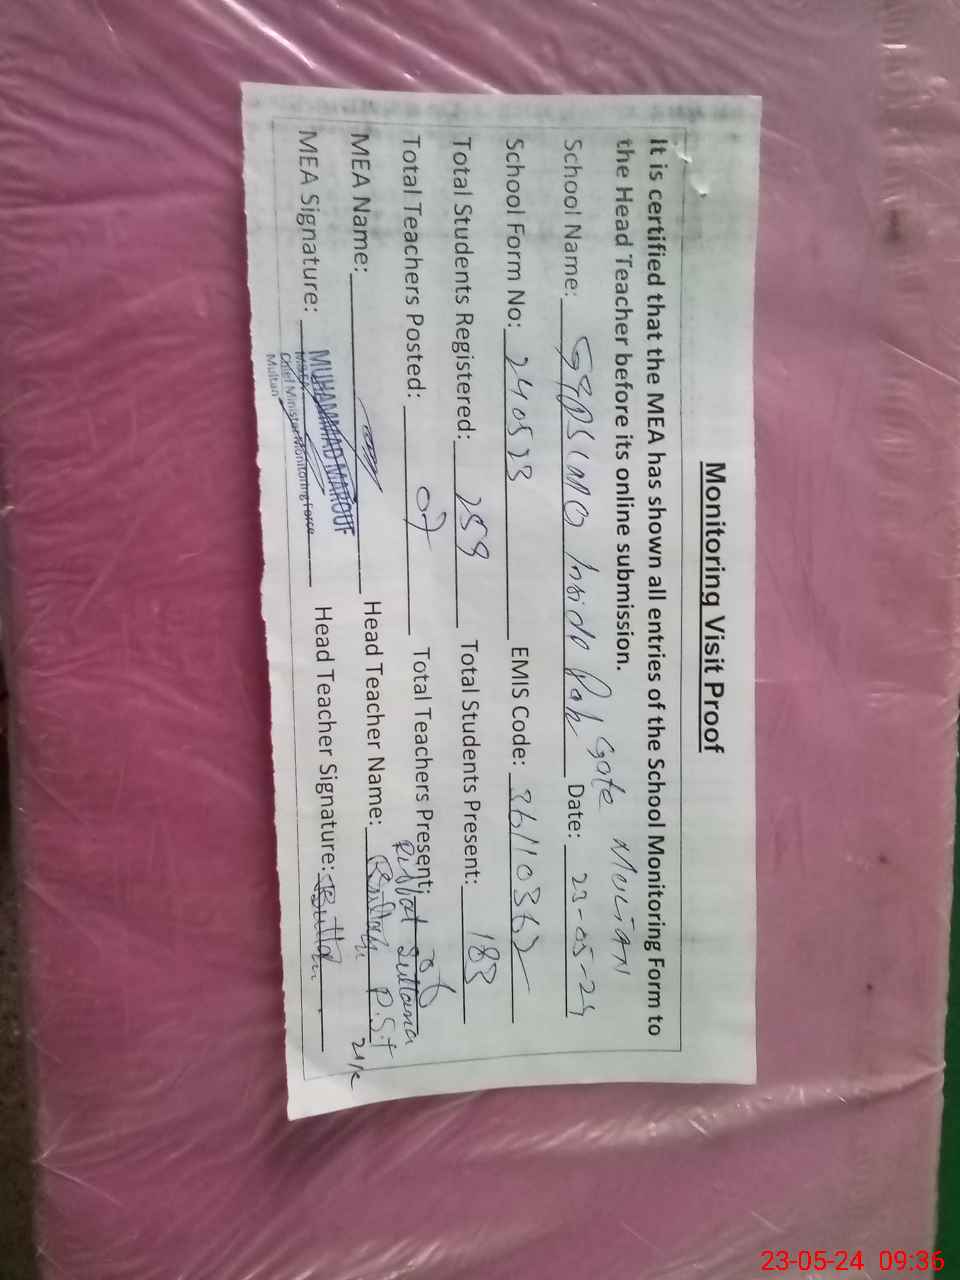 Monitoring Visit Proof
It is certified that the MEA has shown all entries of the School Monitoring Form to
the Head Teacher before its online submission.
School Name: Inside Pak Gate MULTAN Date: 23-05-24
School Form No: 240523 EMIS Code: 36110362
Total Students Registered: 259 Total Students Present: 183
Total Teachers Posted: 07 Total Teachers Present: 06
MEA Name: Head Teacher Name: Riffat Sultana P.S.T
MEA Signature: Head Teacher Signature:
MUHAMMAD MAROUF
Chief Minister Monitoring Force
Multan
23-05-24 09:36